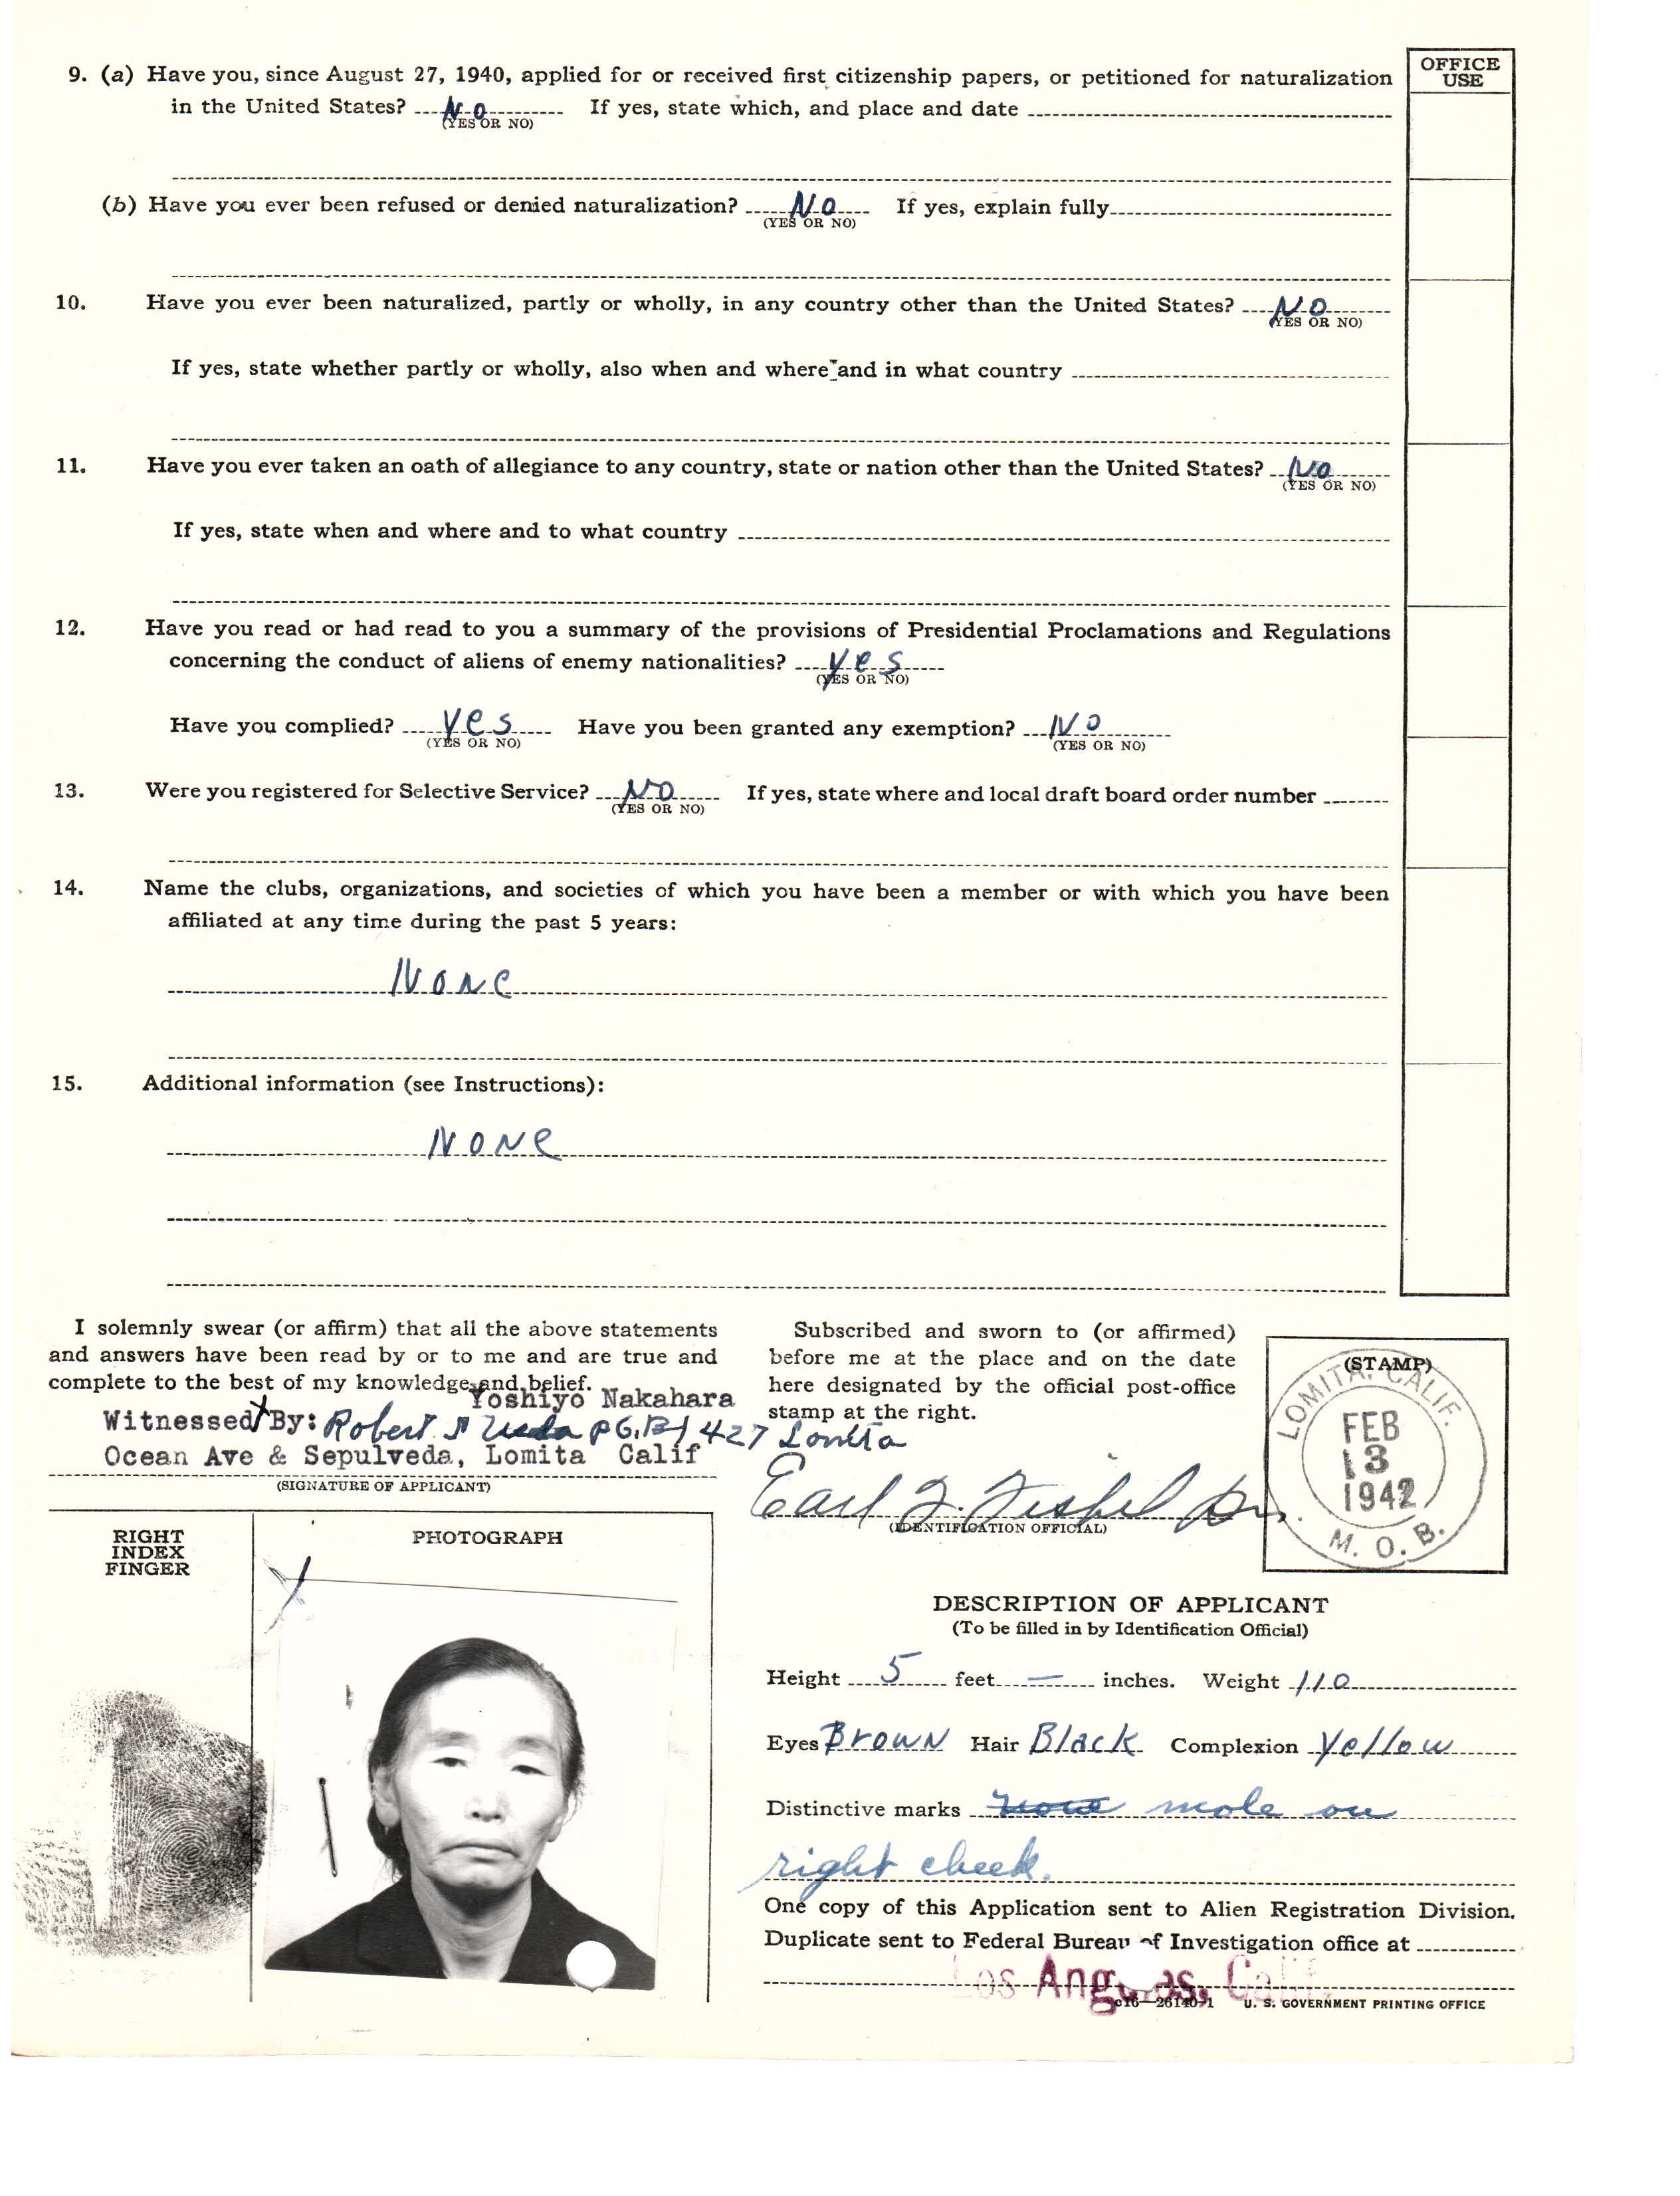 9. (a) Have you, since August 27, 1940, applied for or received first citizenship papers, or petitioned for naturalization
in the United States? No If yes, state which, and place and date
(YES OR NO)
(b) Have you ever been refused or denied naturalization? No If yes, explain fully
(YES OR NO)
10. Have you ever been naturalized, partly or wholly, in any country other than the United States? No
(YES OR NO)
If yes, state whether partly or wholly, also when and where and in what country
11. Have you ever taken an oath of allegiance to any country, state or nation other than the United States? No
(YES OR NO)
If yes, state when and where and to what country
12. Have you read or had read to you a summary of the provisions of Presidential Proclamations and Regulations
concerning the conduct of aliens of enemy nationalities? yes
(YES OR NO)
Have you complied? yes Have you been granted any exemption? No
(YES OR NO) (YES OR NO)
13. Were you registered for Selective Service? NO If yes, state where and local draft board order number
(YES OR NO)
14. Name the clubs, organizations, and societies of which you have been a member or with which you have been
affiliated at any time during the past 5 years:
None
15. Additional information (see Instructions):
None
I solemnly swear (or affirm) that all the above statements
and answers have been read by or to me and are true and
complete to the best of my knowledge and belief.
Yoshiyo Nakahara
X
Witnessed By: Robert 427 Lomita
Ocean Ave & Sepulveda, Lomita Calif
(SIGNATURE OF APPLICANT)
Subscribed and sworn to (or affirmed)
before me at the place and on the date
here designated by the official post-office
stamp at the right.
Earl
(IDENTIFICATION OFFICIAL)
OFFICE
USE
(STAMP)
LOMITA, CALIF.
FEB
13
1942
M. O. B.
RIGHT
INDEX
FINGER
PHOTOGRAPH
X
DESCRIPTION OF APPLICANT
(To be filled in by Identification Official)
Height 5 feet — inches. Weight 110
Eyes Brown Hair Black Complexion Yellow
Distinctive marks mole on
right cheek.
One copy of this Application sent to Alien Registration Division.
Duplicate sent to Federal Bureau of Investigation office at
Los Angeles, Calif.
c16—26140-1 U. S. GOVERNMENT PRINTING OFFICE